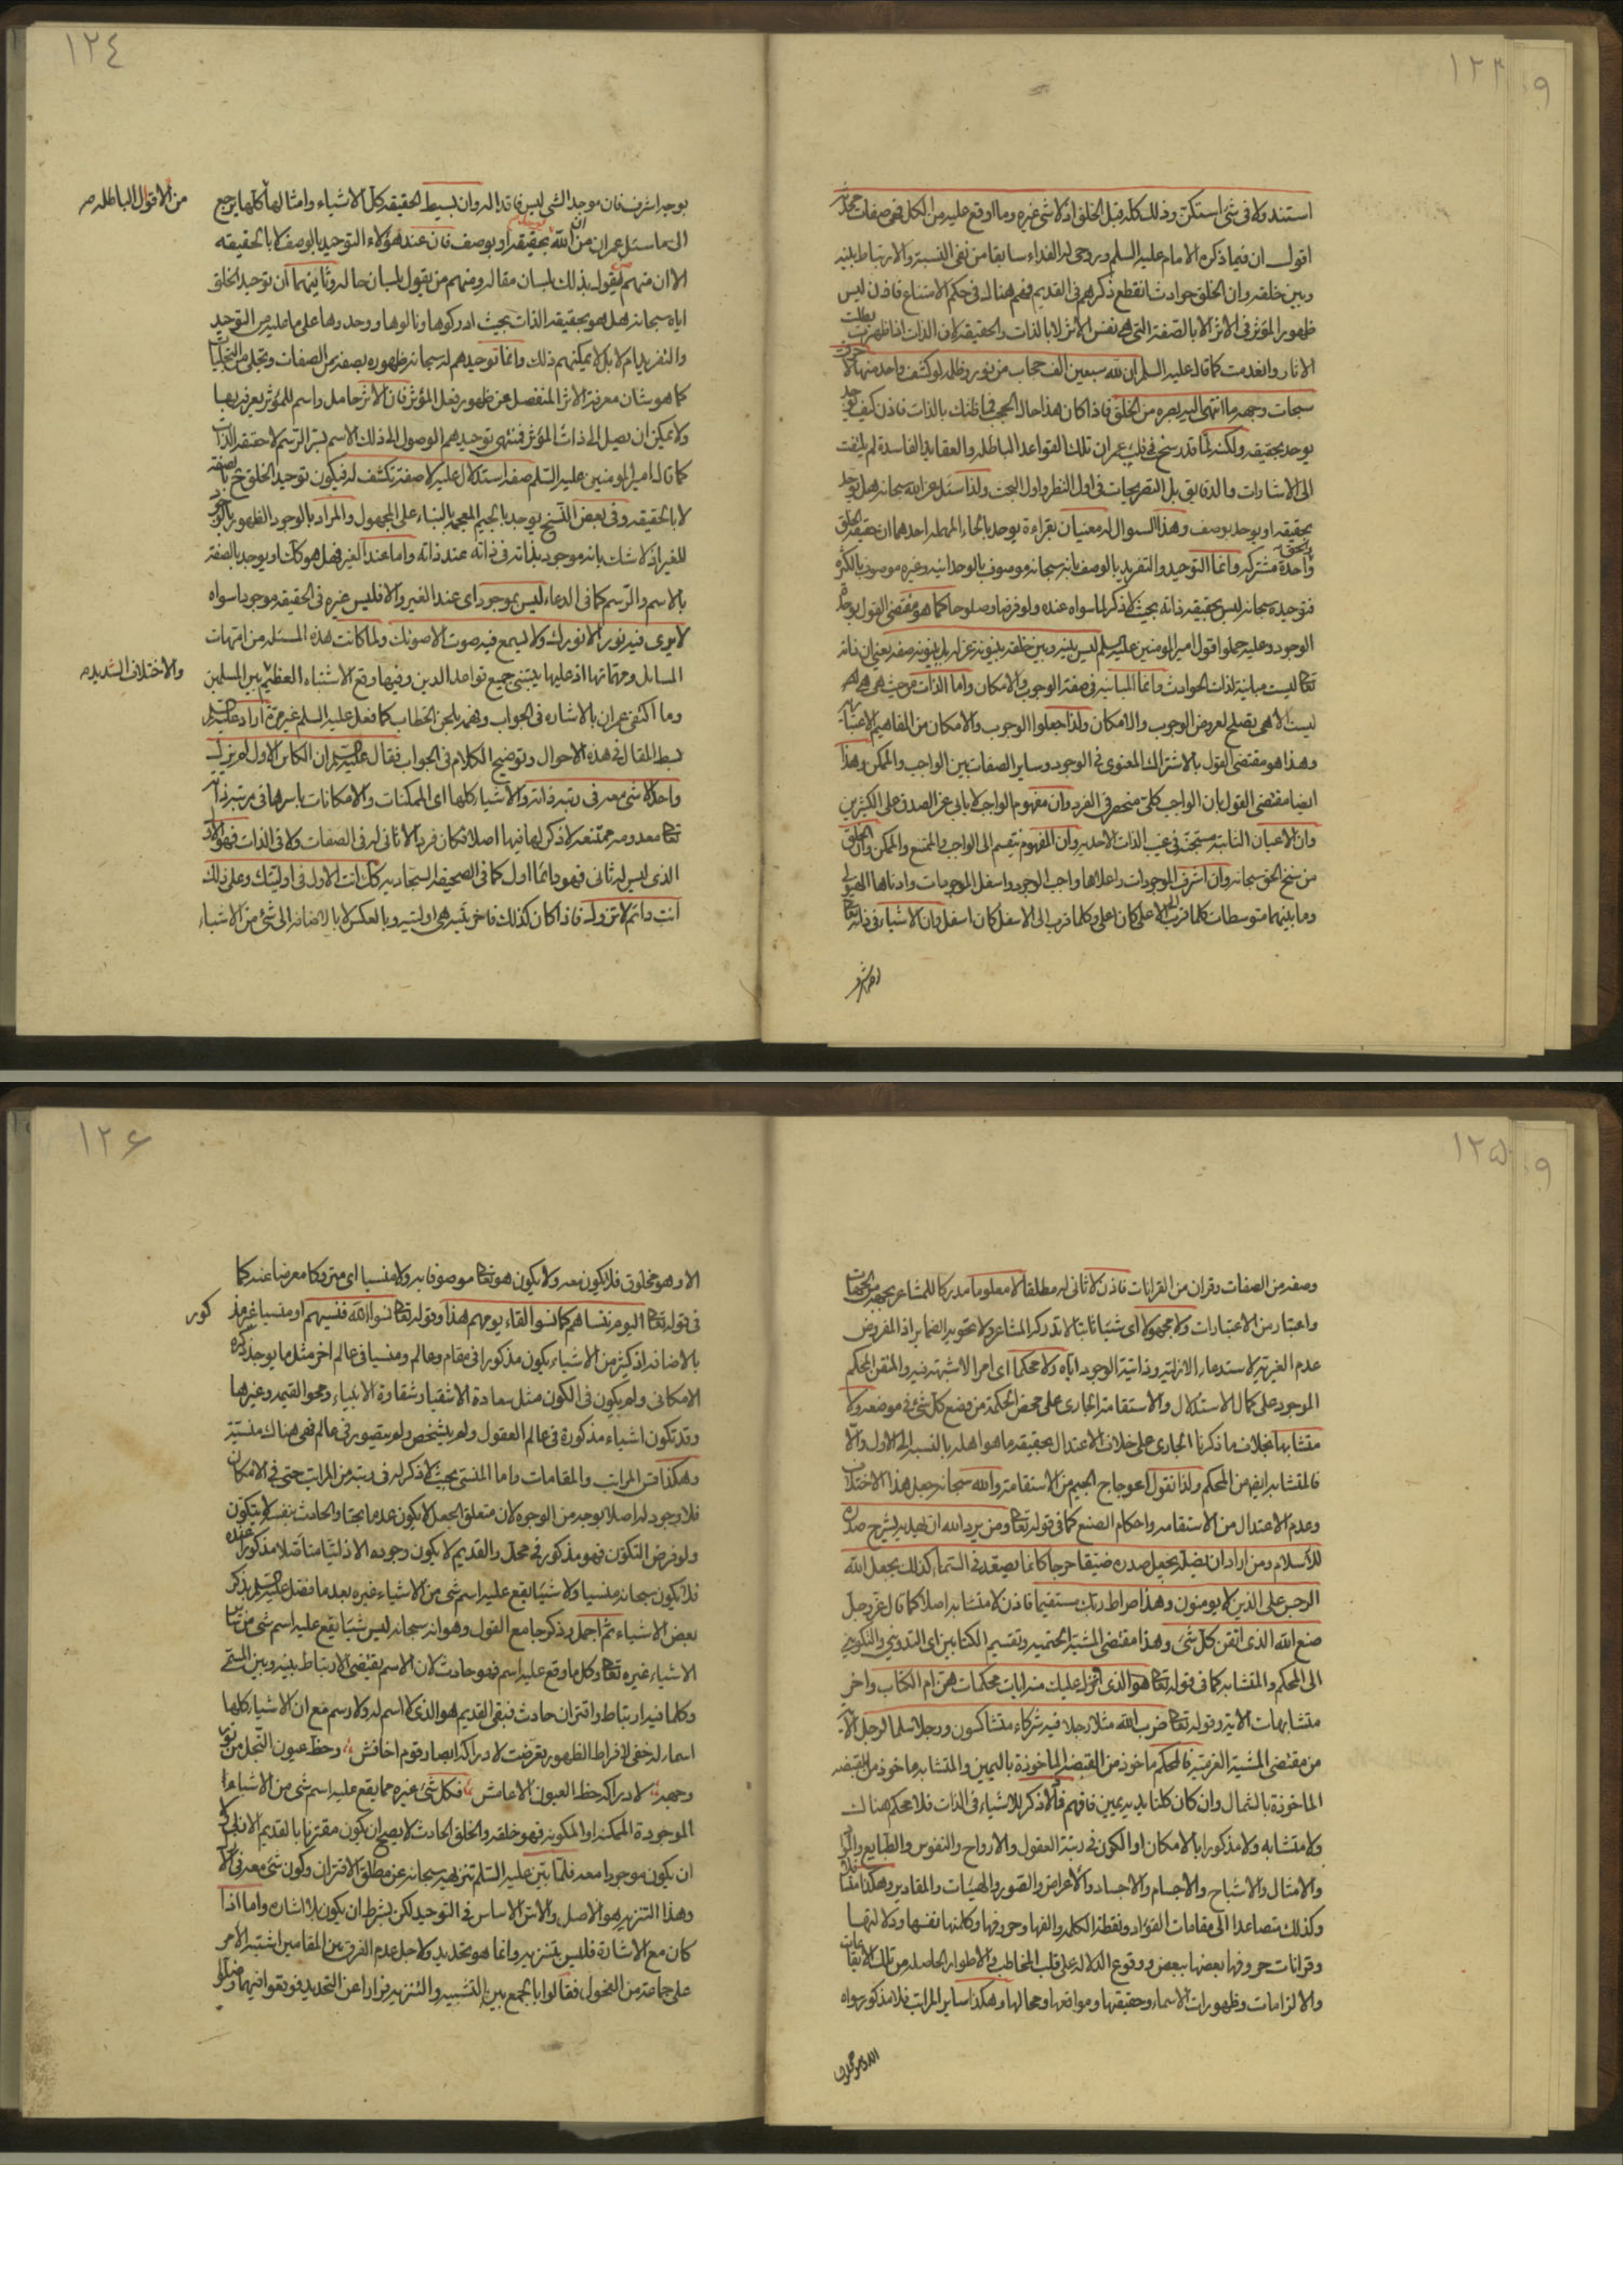 ١٢٣
استند ولا فى شئ استكن وذلك كله قبل الخلق اذ لا شئ غيره وما اوقع عليه من الكل فهى صفات محدثة
اقول ان فيما ذكره الامام عليه السلم وروحى له الفداء سابقا من نفى النسبة والارتباط بينه
وبين خلقه وان الخلق حوادث انقطع ذكرهم فى القديم فهم هنالك فى حكم الامتناع فاذن ليس
ظهور المؤثر فى الاثر الا بالصفة التى هى نفس الاثر لا بالذات والحقيقة لان الذات اذا ظهرت بطلت
الاثار وانعدمت كما قال عليه السلم ان لله سبعين الف حجاب من نور وظلمة لو كشف واحد منها لاحرقت
سبحات وجهه ما انتهى اليه بصره من الخلق فاذا كان هذا حال الحجب فما ظنك بالذات فاذن كيف يوحد
يوحد بحقيقة ولكنه لما قد رسخ فى قلب عمران تلك القواعد الباطلة والعقايد الفاسدة لم يلتفت
الى الاشارات والدقايق بل التصريحات فى اول النظر واول البحث ولذا سئل عن الله سبحانه هل يوحد
بحقيقة او يوحد بوصف وهذا السوال له معنيان بقراءة يوحد بالحاء المهملة احدهما ان حقيقة الخلق والحق
واحدة مشتركة وانما التوحيد والتفريد بالوصف بانه سبحانه موصوف بالوحدانية وغيره موصوف بالكثرة
فتوحيده سبحانه ليس بحقيقة ذاته بحيث لا ذكر لما سواه عنده ولو فرضا وصلوحا كما هو مقتضى القول بوحدة
الوجود وعليه حملوا قول امير المومنين عليه السلم ليس بينه وبين خلقه بينونة عزلة بل بينونة صفة يعنى ان ذاته
تعالى ليست مباينة لذات الحوادث وانما المباينة فى صفة الوجوب والامكان واما الذات من حيث هى هى
ليست الا هى يصلح لعروض الوجوب والامكان ولذا جعلوا الوجوب والامكان من المفاهيم الاعتبارية
وهذا هو مقتضى القول بالاشتراك المعنوى فى الوجود وساير الصفات بين الواجب والممكن وهذا
ايضا مقتضى القول بان الواجب كلى منحصر فى الفرد وان مفهوم الواجب لا يابى عن الصدق على الكثيرين
وان الاعيان الثابتة مستجنة فى غيب الذات الاحدية وان المفهوم ينقسم الى الواجب والممتنع والممكن وان الخلق
من سنخ الحق سبحانه وان اشرف الموجودات واعلاها واجب الوجود واسفل الموجودات وادناها الهيولى
وما بينهما متوسطات كلما قرب الى الاعلى كان اعلى وكلما قرب الى الاسفل كان اسفل وان الاشياء فى ذاته تعالى
١٢٤
بوجه اشرف فان موجد الشئ ليس فاقدا له وان بسيط الحقيقة كل الاشياء وامثالها كلها يرجع
من الاقوال الباطلة صح
الى ما سئل عمران من ان الله بحقيقة او بوصف فان عند هؤلاء التوحيد بالوصف لا بالحقيقة
الا ان منهم من يقول بذلك بلسان مقاله ومنهم من يقول بلسان حاله وثانيهما ان توحيد الخلق
اياه سبحانه هل هو بحقيقة الذات بحيث ادركوها ونالوها ووحدوها على ما عليه من التوحيد
والتفريد ام لا بل لا يمكنهم ذلك وانما توحيدهم له سبحانه ظهوره بصفة من الصفات وتجلى من التجليات
كما هو شان معرفة الاثر المنفصل عن ظهور فعل المؤثر فان الاثر حامل واسم للمؤثر يعرف بها
ولا يمكن ان يصل الى ذات المؤثر فمنتهى توحيدهم الوصول الى ذلك الاسم بسر الرسم لا حقيقة الذات
كما قال امير المومنين عليه السلم صفة استدلال عليه لا صفة تكشف له فيكون توحيد الخلق ح بالصفة
لا بالحقيقة وفى بعض النسخ يوجد بالجيم المعجمة بالبناء على المجهول والمراد بالوجود الظهور بالوجود
للغير اذ لا شك بانه موجود بذاته فى ذاته عند ذاته واما عند الغير فهل هو كك او يوجد بالصفة
بالاسم والرسم كما فى الدعاء ليس بموجود اى عند الغير والا فليس غيره فى الحقيقة موجودا سواه
لا يرى فيه نور الا نورك ولا يسمع فيه صوت الا صوتك ولما كانت هذه المسئلة من امهات
المسايل ومهماتها اذ عليها يبتنى جميع قواعد الدين وفيها وقع الاشتباه العظيم بين المسلمين
والاختلاف الشديد صح
وما اكتفى عمران بالاشارة فى الجواب وفهمه بلحن الخطاب كما فعل عليه السلم غير مرة اراد عليه السلم
بسط المقال فى هذه الاحوال وتوضيح الكلام فى الجواب فقال عليه السلم ان الكائن الاول لم يزل
واحدا لا شئ معه فى رتبة ذاته والاشياء كلها اى الممكنات والامكانات باسرها فى مرتبة ذاته
تعالى معدومة ممتنعة لا ذكر لها فيها اصلا فكان فردا لا ثانى له فى الصفات ولا فى الذات فهو الاول
الذى ليس له ثانى فهو دائما اول كما فى الصحيفة السجادية كك انت الاول فى اوليتك وعلى ذلك
انت دائم لا تزول فاذا كان كذلك فاخريته هى اوليته وبالعكس لا بالاضافة الى شئ من الاشياء
١٢٥
وصفة من الصفات وقران من القرانات فاذن لا ثانى له مطلقا لا معلوما مدركا للمشاعر بجهة من الجهات
واعتبار من الاعتبارات ولا مجهولا اى شيئا ثابتا لا تدركه المشاعر ولا تحويه الضماير اذ المفروض
عدم الغيرية لاستدعاء الازلية وذاتية الوجود اياه ولا محكما اى امرا لا شبهة فيه والمتقن المحكم
الموجود على كمال الاستدلال والاستقامة الجارى على محض الحكمة من وضع كل شئ فى موضعه ولا
متشابها بخلاف ما ذكرنا الجارى على خلاف الاعتدال بحقيقة ما هو اهله بالنسبة الى الاول والا
فالمتشابه ايضا من المحكم ولذا نقول اعوجاج الجيم من الاستقامة والله سبحانه جعل هذا الاختلاف
وعدم الاعتدال من الاستقامة واحكام الصنع كما فى قوله تعالى ومن يرد الله ان يهديه يشرح صدره
للاسلام ومن اراد ان يضله يجعل صدره ضيقا حرجا كانما يصعد فى السماء كذلك يجعل الله
الرجس على الذين لا يومنون وهذا صراط ربك مستقيما فاذن لا متشابه اصلا كما قال عز وجل
صنع الله الذى اتقن كل شئ وهذا مقتضى المشية الحتمية وتقسيم الكتابين اى التدوينى والتكوينى
الى المحكم والمتشابه كما فى قوله تعالى هو الذى انزل عليك منه ايات محكمات هن ام الكتاب واخر
متشابهات الاية وقوله تعالى ضرب الله مثلا رجلا فيه شركاء متشاكسون ورجلا سلما لرجل الاية
من مقتضى المشية العزمية فالمحكم ماخوذ من القبضة الماخوذة باليمين والمتشابه ماخوذ من القبضة
الماخوذة بالشمال وان كان كلتا يديه يمين فافهم فلا ذكر للاشياء فى الذات فلا محكم هناك
ولا متشابه ولا مذكورا بالامكان او الكون فى رتبة العقول والارواح والنفوس والطبايع والمواد
والامثال والاشباح والاجسام والاجساد والاعراض والصور والهيئات والمقادير وهكذا متنازلا
وكذلك متصاعدا الى مقامات الفؤاد ونقطة الكلمة والفها وحروفها وكلمتها نفسها ودلالتها
وقرانات حروفها بعضها ببعض ووقوع الدلالة على قلب المخاطب والاطوار الحاصلة من تلك الايقاعات
والالزامات وظهورات الاسماء وحقيقتها ومواقعها ومحالها وهكذا ساير المراتب فلا مذكور سواه
١٢٦
الا وهو مخلوق فلا يكون معه ولا يكون هو تعالى موصوفا به ولا منسيا اى متروكا معرضا عنه كما
فى قوله تعالى اليوم ننساهم كما نسوا لقاء يومهم هذا وقوله تعالى نسوا الله فنسيهم او منسيا غير مذ
كور
بالاضافة اذ كثير من الاشياء يكون مذكورا فى مقام وعالم ومنسيا فى عالم اخر مثل ما يوجد ذكره
الامكانى ولم يكون فى الكون مثل سعادة الاشقياء وشقاوة الانبياء ومحو القيمة وغيرها
وقد تكون اشياء مذكورة فى عالم العقول ولم يتشخص ولم يتصور فى عالم فهى هناك منسية
وهكذا من المراتب والمقامات واما المنسى بحيث لا ذكر له فى رتبة من المراتب حتى فى الامكان
فلا وجود له اصلا بوجه من الوجوه لان متعلق الجعل لا يكون عدما بحتا والحادث بنفسه لا يتكون
ولو فرض التكون فهو مذكور فى محل والقديم لا يكون وجوده الا ذاتيا متاصلا مذكورا عنده
فلا يكون سبحانه منسيا ولا شيئا يقع عليه اسم شئ من الاشياء غيره بعد ما فصل عليه السلم بذكر
بعض الاشياء ثم اجمل وذكر جامع القول وهو انه سبحانه ليس شيئا يقع عليه اسم شئ من
الاشياء غيره تعالى وكل ما وقع عليه اسم فهو حادث لان الاسم يقتضى الارتباط بينه وبين المسمى
وكلما فيه ارتباط واقتران حادث فبقى القديم هو الذى لا اسم له ولا رسم مع ان الاشياء كلها
اسماء له خفى لافراط الظهور تعرضت لادراكه ابصار قوم اخافش وحظ عيون النجل من نور
وجهه لادراكه حظ العيون الاعامش فكل شئ غيره مما يقع عليه اسم شئ من الاشياء
الموجودة الممكنة او المكونة فهو خلقه والخلق الحادث لا يصح ان يكون مقترنا بالقديم الازلى
ان يكون موجودا معه فلما بين عليه السلم تنزيهه سبحانه عن مطلق الاقتران وكون شئ معه
وهذا التنزيه هو الاصل والاس الاساس فى التوحيد لكن بشرط ان يكون بلا اشارة واما اذا
كان مع الاشارة فليس بتنزيه وانما هو تحديد ولاجل عدم الفرق بين المقامين اشتبه الامر
على جماعة من الفحول فقالوا بالجمع بين التشبيه والتنزيه فرارا عن التحديد فوقعوا فيهما وضلوا